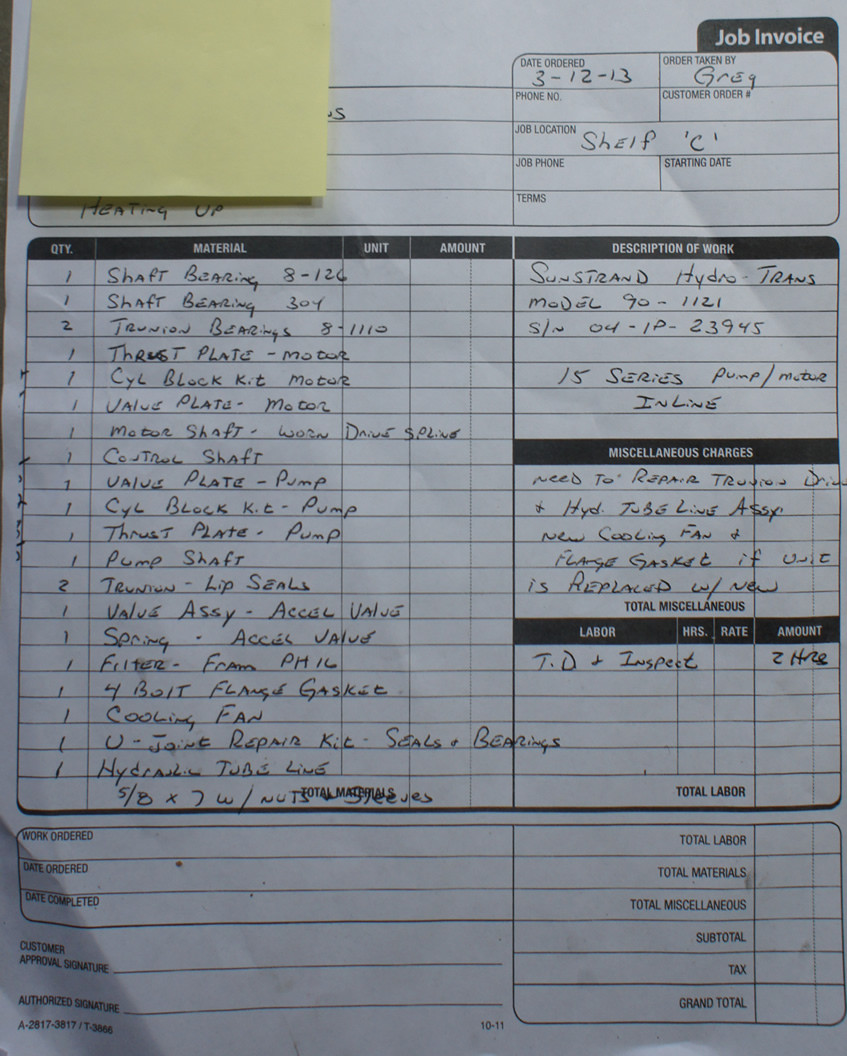 Job Invoice
DATE ORDERED
3-12-13
ORDER TAKEN BY
Greg
PHONE NO.
CUSTOMER ORDER #
JOB LOCATION
Shelf 'C'
JOB PHONE
STARTING DATE
TERMS
HEATING UP
QTY. MATERIAL UNIT AMOUNT
1 SHAFT BEARING 8-126
1 SHAFT BEARING 304
2 TRUNION BEARINGS 8-1110
1 THRUST PLATE - MOTOR
1 CYL BLOCK Kit MOTOR
1 VALUE PLATE - MOTOR
1 MOTOR SHAFT - WORN DRIVE SPLINE
1 CONTROL SHAFT
1 VALUE PLATE - PUMP
1 CYL BLOCK Kit - PUMP
1 THRUST PLATE - PUMP
1 PUMP SHAFT
2 TRUNION - LIP SEALS
1 VALUE ASSY - ACCEL VALUE
1 SPRING - ACCEL VALUE
1 FILTER - FRAM PH16
1 4 BOLT FLANGE GASKET
1 COOLING FAN
1 U-JOINT REPAIR Kit - SEALS & BEARINGS
1 HYDRAULIC TUBE LINE
5/8 x 7 w/ NUTS & Sleeves
TOTAL MATERIALS
DESCRIPTION OF WORK
SUNSTRAND HYDRO-TRANS
MODEL 90-1121
S/N 04-1P-23945
15 SERIES PUMP/MOTOR
INLINE
MISCELLANEOUS CHARGES
NEED TO REPAIR TRUNION
& HYD. TUBE LINE ASSY.
NEW COOLING FAN &
FLANGE GASKET if UNIT
is REPLACED w/ NEW
TOTAL MISCELLANEOUS
LABOR HRS. RATE AMOUNT
T.D & INSPECT 2 HRS
TOTAL LABOR
WORK ORDERED
DATE ORDERED
DATE COMPLETED
CUSTOMER
APPROVAL SIGNATURE
AUTHORIZED SIGNATURE
A-2817-3817 / T-3866
10-11
TOTAL LABOR
TOTAL MATERIALS
TOTAL MISCELLANEOUS
SUBTOTAL
TAX
GRAND TOTAL